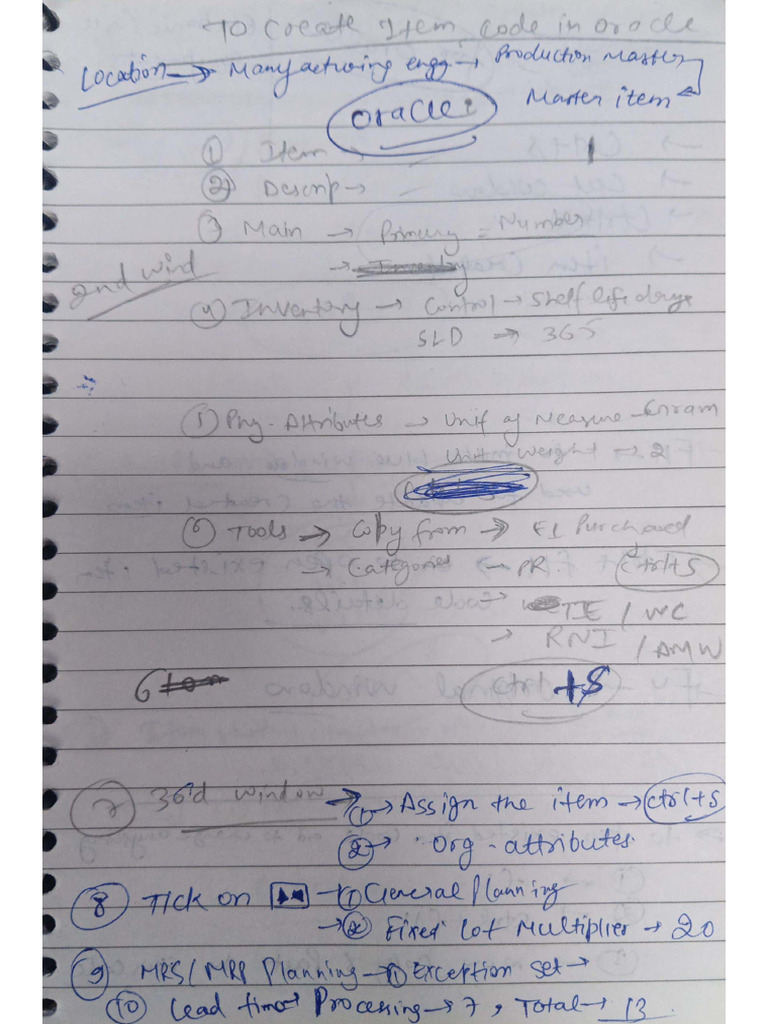 To Create Item Code in oracle
Location → Manufacturing engg → Production Master
Master item
Oracle:
① Item →
② Descrip →
③ Main → Primary = Number
→ Inventory
2nd wind
④ Inventory → Control → Shelf life days
SLD → 365
⑤ Phy. Attributes → Unit of Measure - Gram
Unit weight → 2
⑥ Tools → Copy from → F1 Purchased
→ Categories → PR. Ctrl+S
→ TIE / WC
→ RNI / AMW
6
Ctrl +S
⑦ 3rd window → ① → Assign the item → Ctrl+S
② → Org - attributes
⑧ Tick on → ① General Planning
→ ② Fixed Lot Multiplier → 20
⑨ MRS/MRP Planning → ① Exception set →
⑩ Lead time → Processing → 7, Total → 13